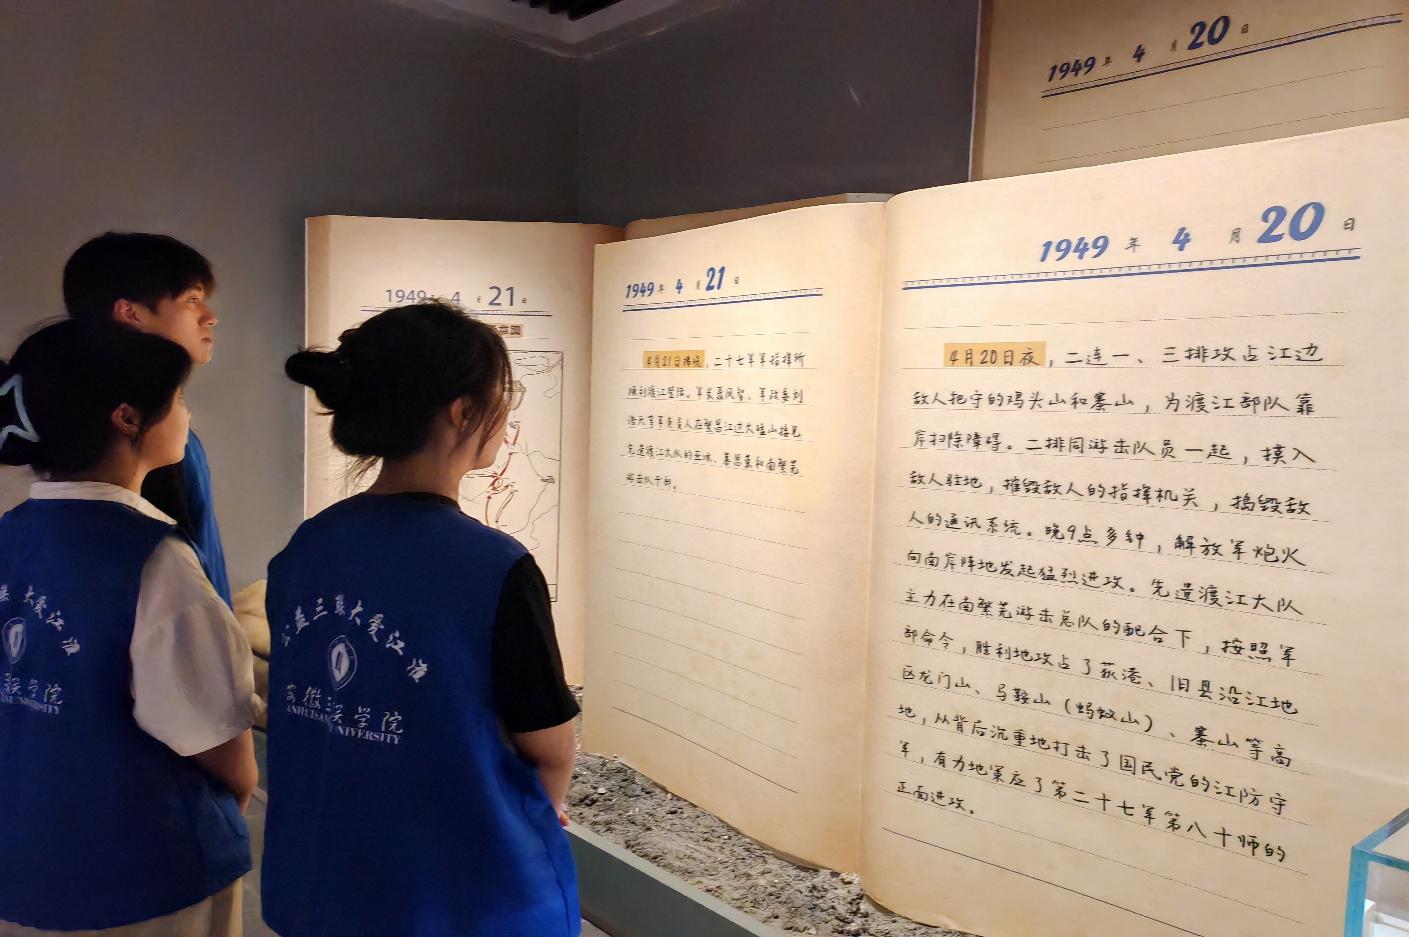 1949年 4月 20日
1949年 4月 20日
4月20日夜，二连一、三排攻占江边
敌人把守的鸡头山和寨山，为渡江部队靠
岸扫除障碍。二排同游击队员一起，摸入
敌人驻地，摧毁敌人的指挥机关，捣毁敌
人的通讯系统。晚9点多钟，解放军炮火
向南岸阵地发起猛烈进攻。先遣渡江大队
主力在南繁芜游击总队的配合下，按照军
部命令，胜利地攻占了荻港、旧县沿江地
区龙门山、马鞍山（蚂蚁山）、寨山等高
地，从背后沉重地打击了国民党的江防守
军，有力地策应了第二十七军第八十师的
正面进攻。
1949年 4月 21日
4月21日拂晓，二十七军军指挥所
顺利渡江登陆。军长聂凤智、军政委刘
浩天等军负责人在繁昌江边大磕山接见
先遣渡江大队的亚冰、慕思荣和南繁芜
游击队干部。
1949年 4月 21日
意图
三葛大爱江淮
安徽三联学院
ANHUI SANLIAN UNIVERSITY
大爱江淮
联学院
UNIVERSITY